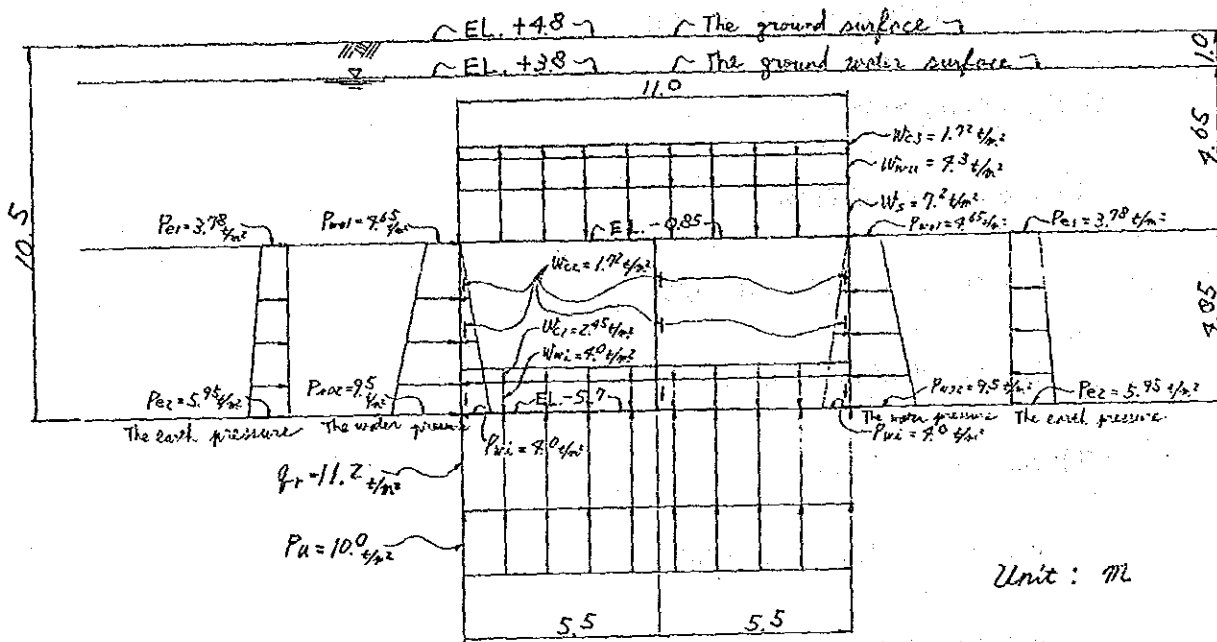 EL. +4.8 The ground surface
EL. +3.8 The ground water surface
1.0
11.0
4.65
10.5
Wc3 = 1.72 t/m²
Wwu = 4.3 t/m²
Ws = 7.2 t/m²
Pe1 = 3.78 t/m²
Pwo1 = 4.65 t/m²
EL. -0.85
Pwo1 = 4.65 t/m²
Pe1 = 3.78 t/m²
Wc2 = 1.72 t/m²
4.85
Wc1 = 2.45 t/m²
Wwi = 4.0 t/m²
Pe2 = 5.95 t/m²
Pwo2 = 9.5 t/m²
EL. -5.7
Pwo2 = 9.5 t/m²
Pe2 = 5.95 t/m²
The earth pressure
The water pressure
Pwi = 4.0 t/m²
Pwi = 4.0 t/m²
The water pressure
The earth pressure
qr = 11.2 t/m²
Pu = 10.0 t/m²
Unit : m
5.5
5.5